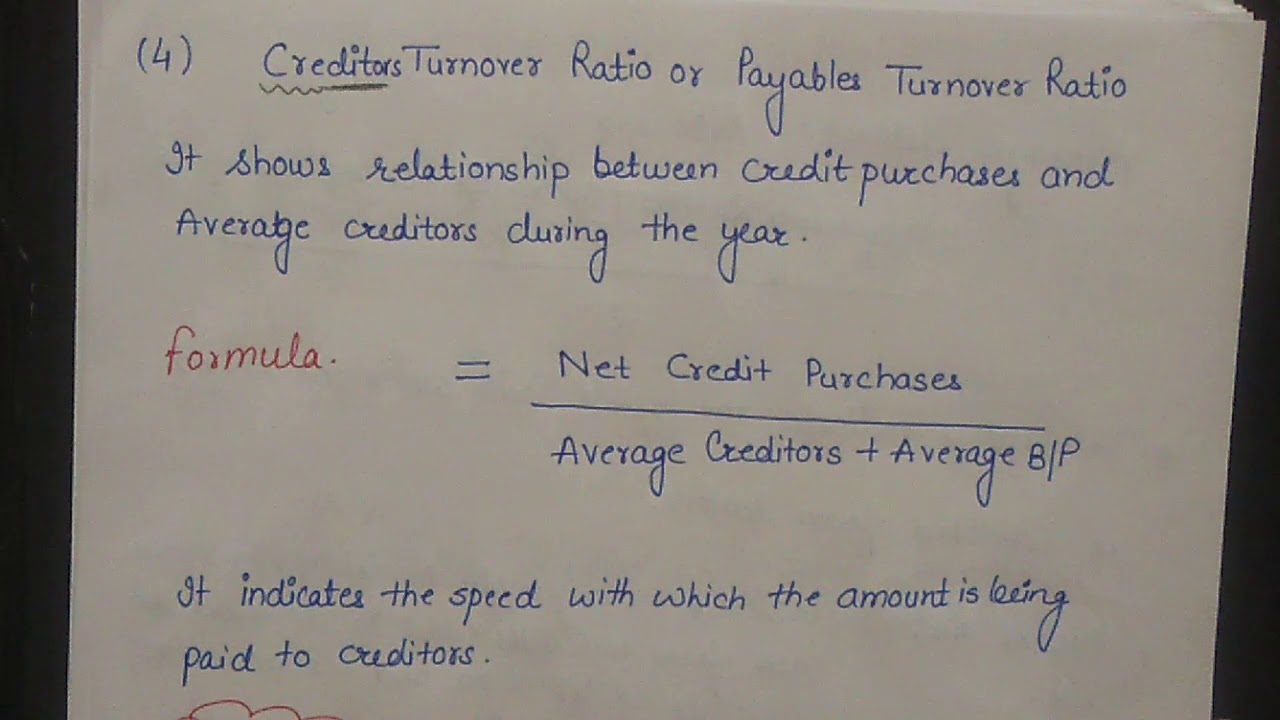 (4) Creditors Turnover Ratio or Payables Turnover Ratio
It shows relationship between credit purchases and
Average creditors during the year.
formula. = Net Credit Purchases
Average Creditors + Average B/P
It indicates the speed with which the amount is being
paid to creditors.